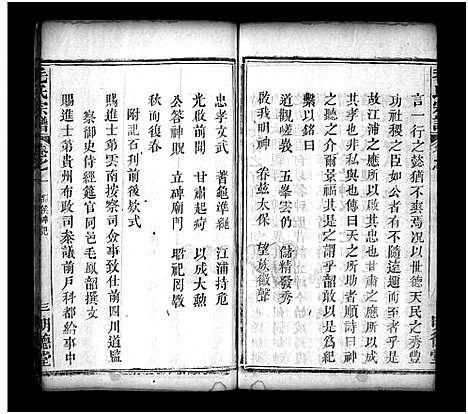 言一行之懿猶不爽焉况以世德天民之秀豐
功社稷之臣如公者有不隨造遇而示應也哉
故江浦之應所以成其忠也甘肅之應所以成
其孝也非私與也傳曰天之所助者順詩曰神
之聽之介爾景福其是之謂乎韶敢以是為紀
繫以銘曰
道觀嵯義 五峯雲仍 儲精發秀
啟我明神 眷兹太保 望族徽聲
忠孝文武 著龜準繩 江浦持危
光啟前開 甘肅起疴 以成大勳
公答神貺 立碑廟門 昭祀罔斁
秋而復春
附記石刊前後欵式
賜進士第雲南按察司僉事致仕前四川道監
察御史侍經筵官同邑毛鳳韶撰文
賜進士第貴州布政司叅議前戶科都給事中
毛氏宗譜
三 明德堂